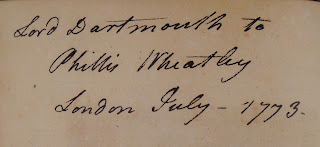 Lord Dartmouth to
Phillis Wheatley
London July - 1773.